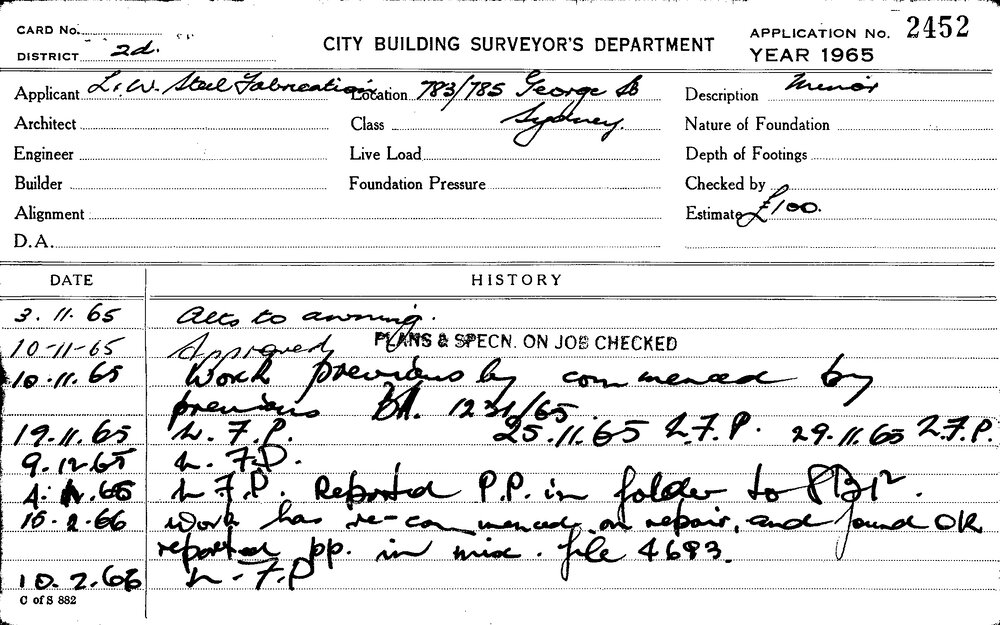 CARD No.
CITY BUILDING SURVEYOR'S DEPARTMENT
APPLICATION No. 2452
DISTRICT 2d.
YEAR 1965
Applicant L.W. Steel Fabrications Location 783/785 George St Description Minor
Architect Class Sydney. Nature of Foundation
Engineer Live Load Depth of Footings
Builder Foundation Pressure Checked by
Alignment Estimate £100.
D.A.
DATE HISTORY
3.11.65 Alts to awning.
10-11-65 Approved PLANS & SPECN. ON JOB CHECKED
10.11.65 Work previous by commenced by
previous BA. 1231/65.
19.11.65 L.F.P. 25.11.65 L.F.P. 29.11.65 L.F.P.
9.12.65 L.F.P.
L.F.P. Reported P.P. in folder to
.2.66 Work has re-commenced on repair, and found OK
reported pp. in misc. file 4693.
10.2.66 L.F.P
C of S 882